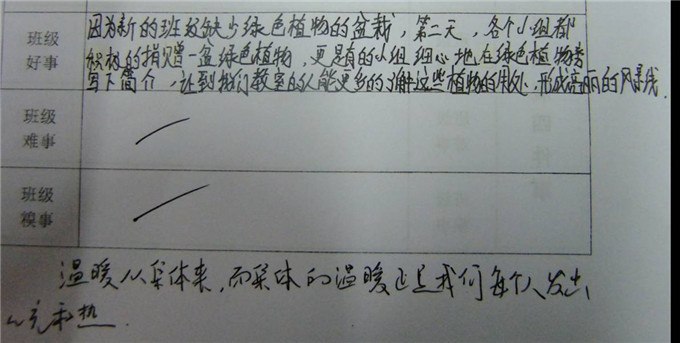 因为新的班级缺少绿色植物的盆栽，第二天，各个小组都
班级
好事
积极的捐赠一盆绿色植物，更是有的小组细心地在绿色植物旁
写下简介，让到我们教室的人能更多的了解这些植物的用处，形成亮丽的风景线.
班级
难事
班级
糗事
温暖从集体来，而集体的温暖正是我们每个人发出
光和热.